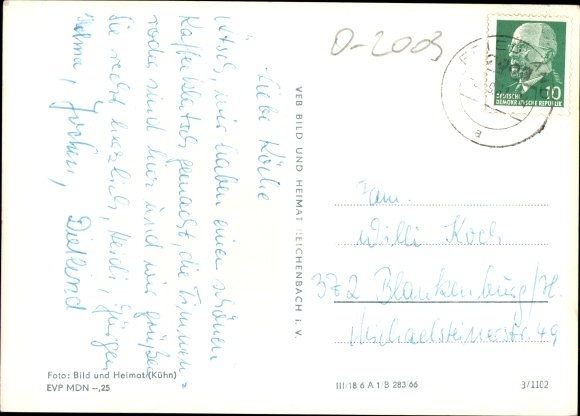 Liebe Köche
Ätsch, wir haben einen schönen
Kaffeeklatsch gemacht, die Timmen-
roder sind hier und wir grüßen
Sie recht herzlich, Heidi, Jürgen
Helma, Jochen, Dietlind
Foto: Bild und Heimat (Kühn)
EVP MDN –,25
VEB BILD UND HEIMAT REICHENBACH i. V.
0-2003
10
DEUTSCHE
DEMOKRATISCHE REPUBLIK
a
Fam.
Willi Koch
372 Blankenburg/H.
Michaelsteinerstr. 49
III/18/6 A 1/B 283/66
3/1102